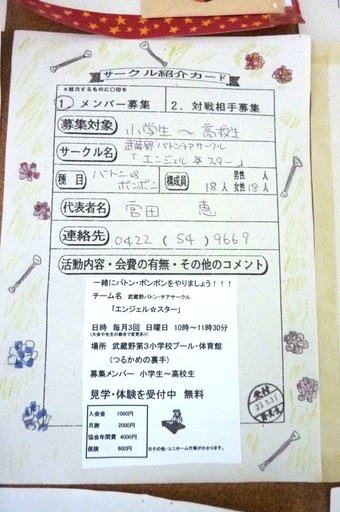 サークル紹介カード
*該当するものに○印を
1 メンバー募集 2. 対戦相手募集
募集対象 小学生～高校生
サークル名 武蔵野バトンチアサークル
「エンジェル☆スター」
種目 バトン&ポンポン 構成員 男性 人
18人 女性 18人
代表者名 宮田 恵
連絡先 0422 (54) 9669
活動内容・会費の有無・その他のコメント
一緒にバトン・ポンポンをやりましょう!!!
チーム名 武蔵野バトン・チアサークル
「エンジェル☆スター」
日時 毎月3回 日曜日 10時～11時30分
(大会や先生の都合で変更あり)
場所 武蔵野第3小学校プール・体育館
(つるかめの裏手)
募集メンバー 小学生～高校生
見学・体験を受付中 無料
入会金 1000円
月謝 2000円
協会年間費 4000円
保険 800円
※その他・ユニホーム代等がかかります。
受付